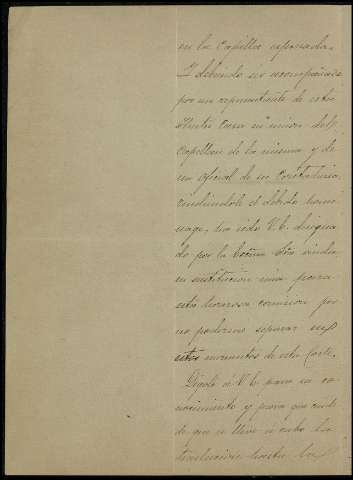 en la Capilla expresada.
Y debiendo ir acompañados
por un representante de esta
Ilustre Casa en union del
Capellan de la misma y de
un oficial de su Contaduría
rindiéndole el debido home
nage, ha sido V.E. designa
do por la Excma Sra viuda
en sustitución mia para
esta honrosa comision por
no poderme separar en
estos momentos de esta Corte.
Dígolo á V.E. para su co
nocimiento y para que cuide
de que se lleve á cabo la
traslación hasta la